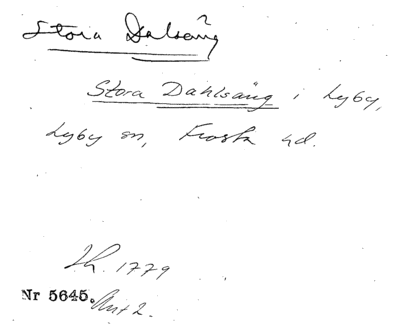 Stora Dalsäng
Stora Dahlsäng i Lyby,
Lyby sn, Frosta hd.
Lh. 1779
Nr 5645. Akt 2.